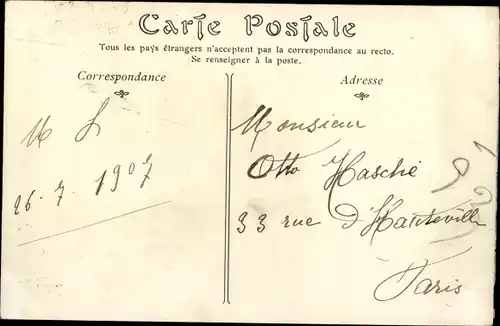 Carte Postale
Tous les pays étrangers n'acceptent pas la correspondance au recto.
Se renseigner à la poste.
Correspondance
Adresse
M L
26.7.1907
Monsieur
Otto Hasché
33 rue d'Hauteville
Paris